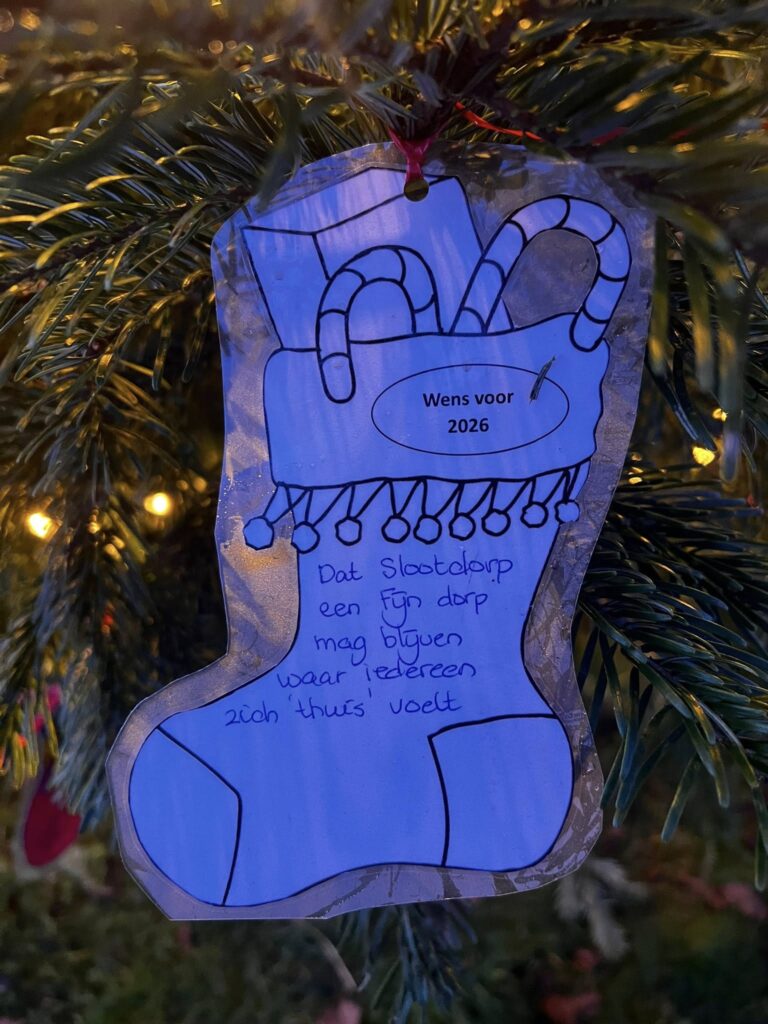 Wens voor
2026
Dat Slootdorp
een Fijn dorp
mag blijven
waar iedereen
zich 'thuis' voelt